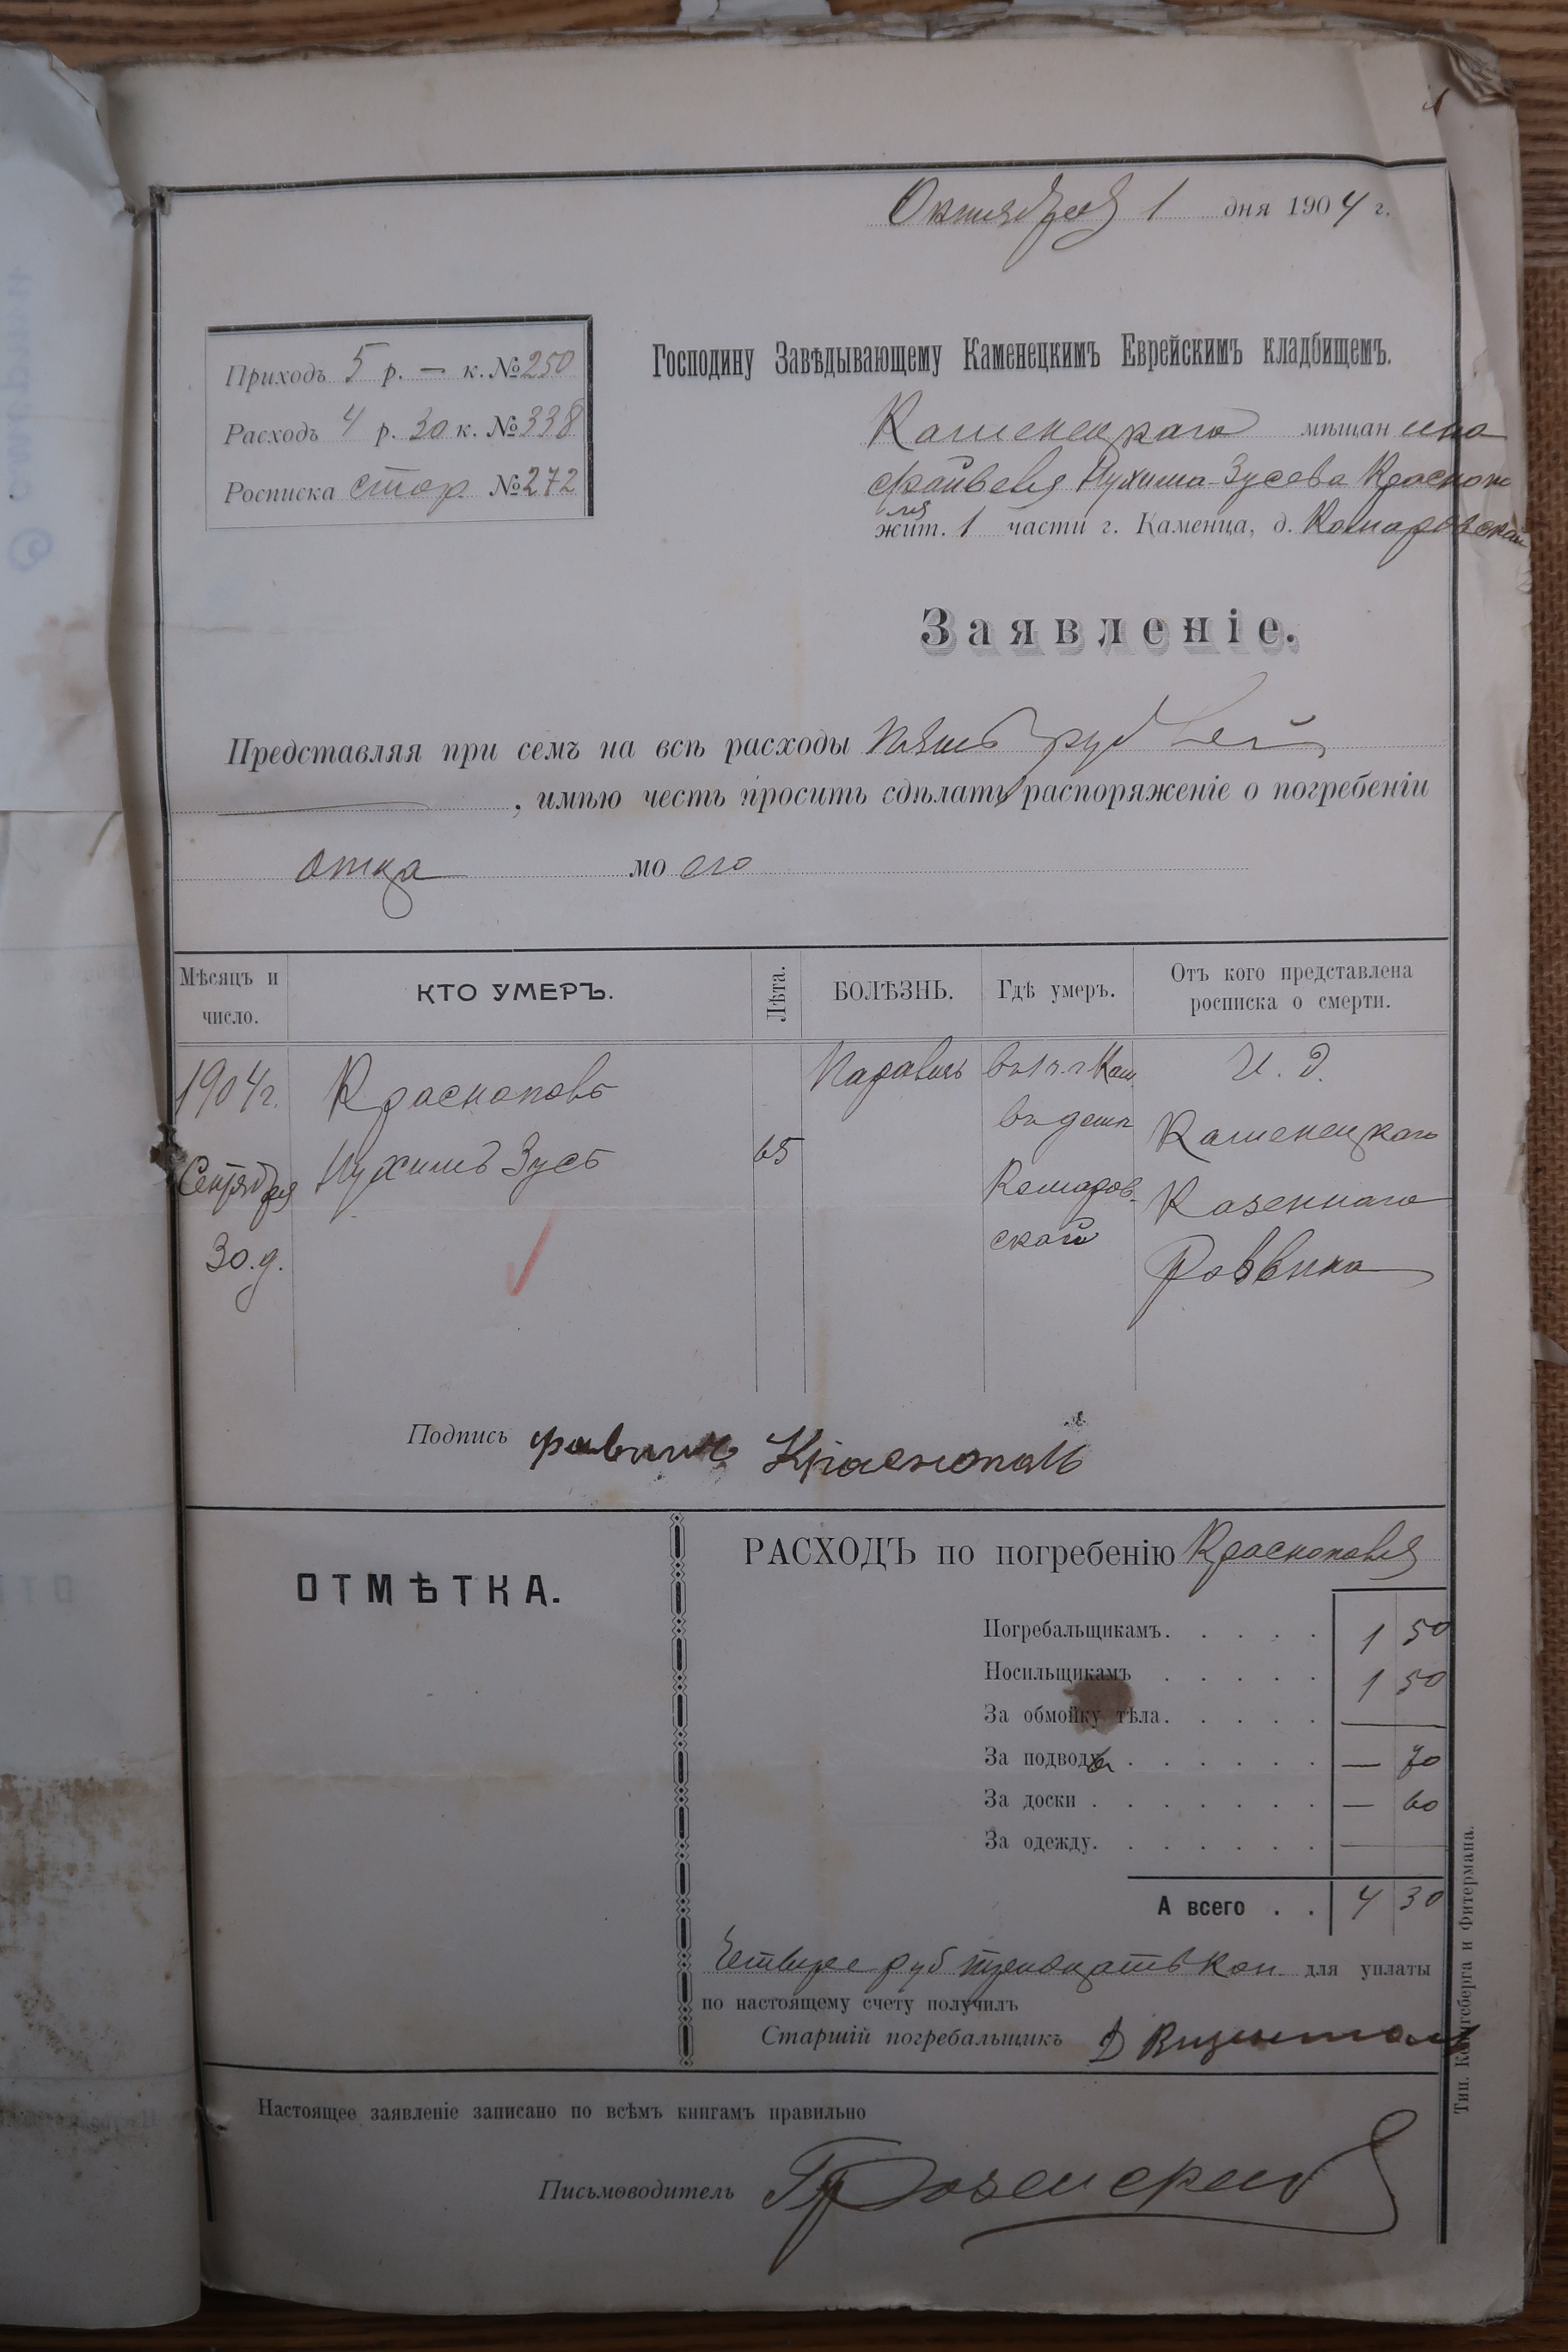 Октября 1 дня 1904 г.
Приходъ 5 р. — к. № 250
Расходъ 4 р. 30 к. № 338
Росписка стор № 272
Господину Завѣдывающему Каменецкимъ Еврейскимъ кладбищемъ.
Каменецкаго мѣщанина
Файвеля Нухима-Зусева Краснопо
ля
жит. 1 части г. Каменца, д. Комаровской
Заявленіе.
Представляя при семъ на всѣ расходы пять рублей
, имѣю честь просить сдѣлать распоряженіе о погребеніи
отца моего
Мѣсяцъ и число. КТО УМЕРЪ. Лѣта. БОЛѢЗНЬ. Гдѣ умеръ. Отъ кого представлена росписка о смерти.
1904 г. Краснополь въ 1 ч. г. Кам. И. Д.
въ домѣ Каменецкаго
Сентября Нухимъ Зусь 65 Комаров- Казеннаго
30 д. ской Раввина
Подпись Краснополь
ОТМѢТКА.
РАСХОДЪ по погребенію Краснополя
Погребальщикамъ. 1 50
Носильщикамъ 1 50
За обмойку тѣла. —
За подводы — 70
За доски — 60
За одежду. —
А всего 4 30
Четыре руб тридцать коп. для уплаты
по настоящему счету получилъ
Старшій погребальщикъ
Настоящее заявленіе записано по всѣмъ книгамъ правильно
Письмоводитель
Тип. Кенигсберга и Фитермана.